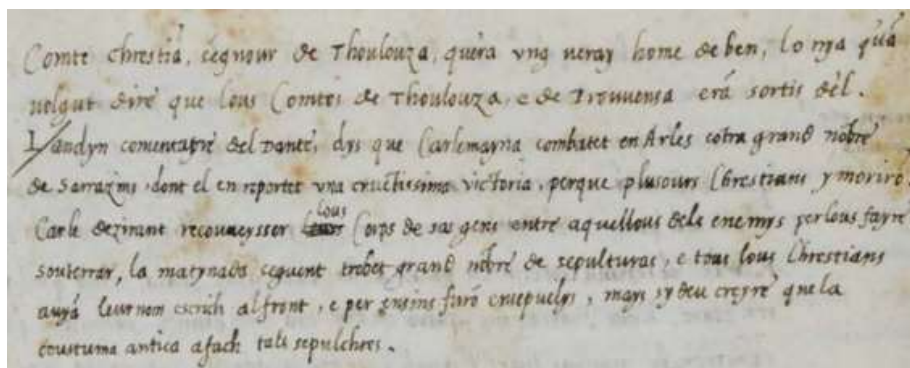 Comte Chrestiã, segnour de Thoulouza, quera vng veray home de ben, lo nya quã
volgut dire que lous Comtes de Thoulouza, e de Prouuensa erã sortis dèl.
Landyn comentayre del Dante, dys que Carlemayna combatet en Arles cõtra grand nõbre
de Sarrazins, dont el en reportet vna cruelissima victoria, perque plusours Chrestians y morirõ.
Carle dezirant recouneysser lous Corps de sas gens entre aquellous dels enemys per lous fayre
souterrar, la matynada seguent trobet grand nõbre de sepulturas, e tous lous Chrestians
auyã leur nom escrich al front, e per ensems furõ ensepuelys, mays sy deu creyre que la
coustuma antica a fach tals sepulchres.